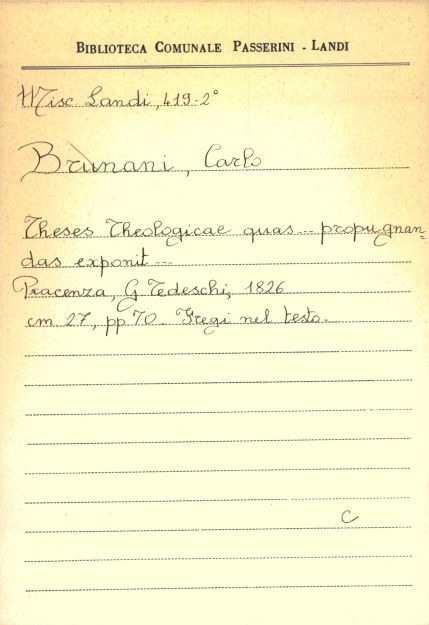 BIBLIOTECA COMUNALE PASSERINI - LANDI
Misc Landi, 419-2°
Brunani, Carlo
Theses Theologicae quas... propugnan=
das exponit...
Piacenza, G Tedeschi, 1826
cm 27, pp 70. Fregi nel testo.
C